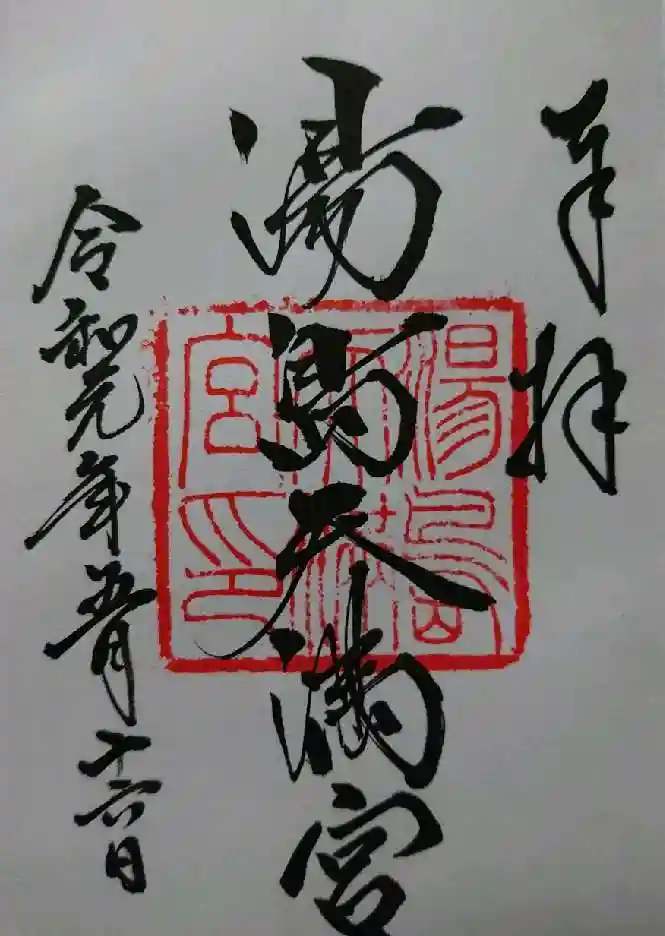 奉拝
湯島天満宮
湯島天満宮印
令和元年五月十六日